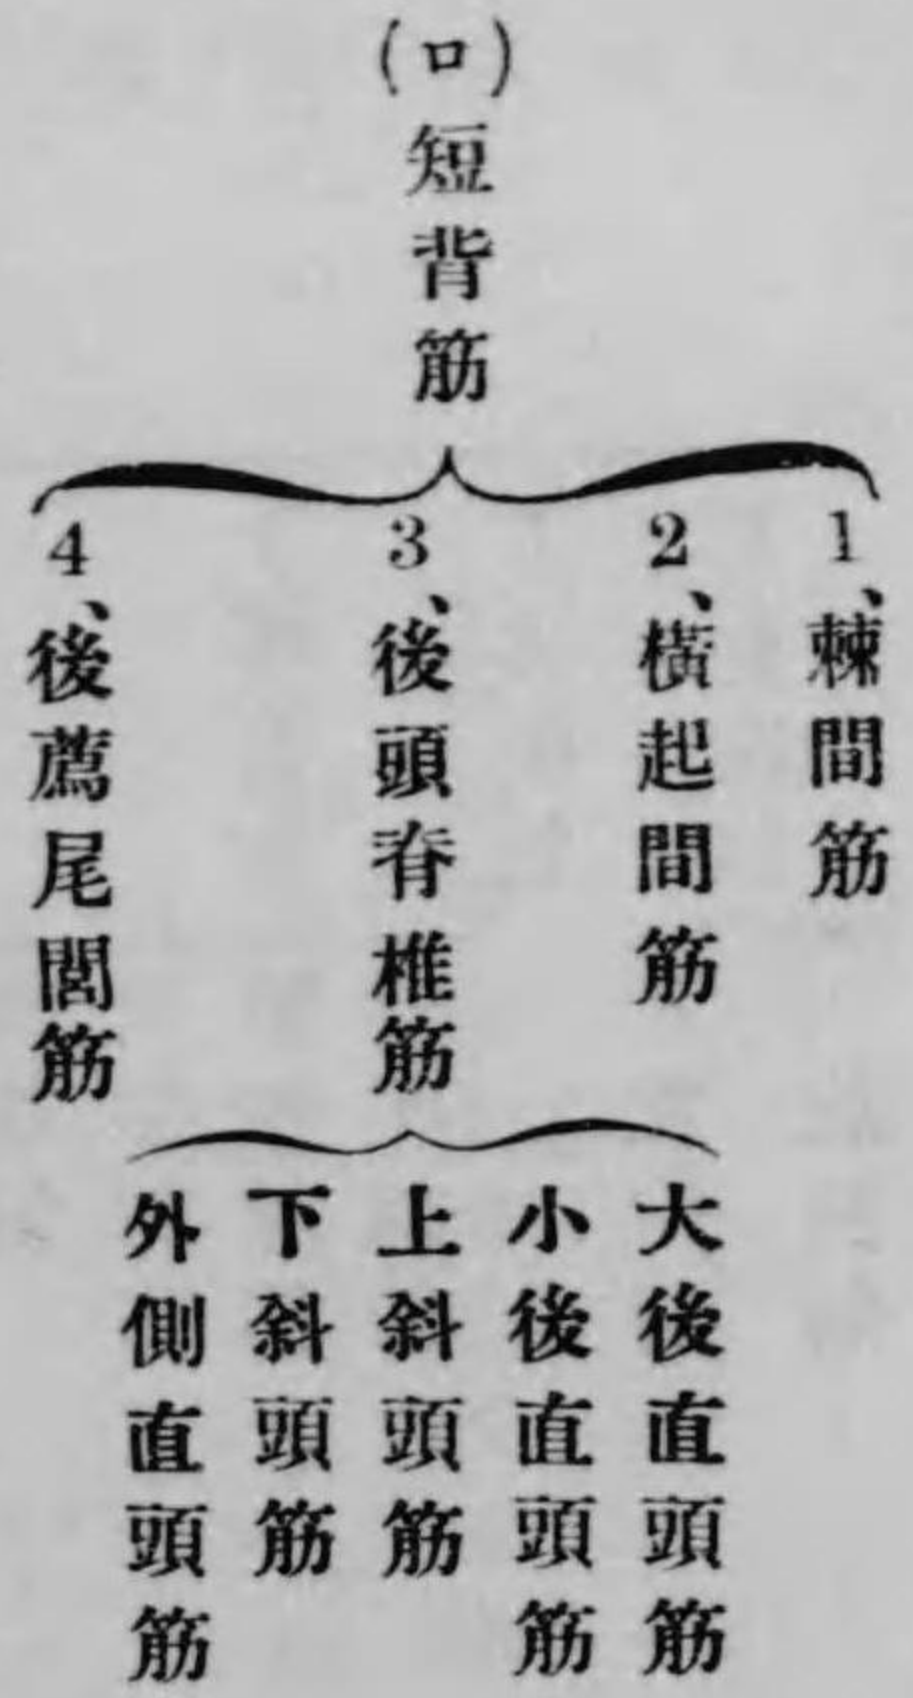 (ロ)短背筋
1、棘間筋
2、橫起間筋
3、後頭脊椎筋
大後直頭筋
小後直頭筋
上斜頭筋
下斜頭筋
外側直頭筋
4、後薦尾閭筋